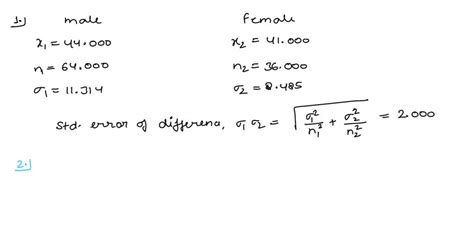 1.) male female
x₁ = 44.000 x₂ = 41.000
n = 64.000 n₂ = 36.000
σ₁ = 11.314 σ₂ = 8.485
Std. error of differena, σ₁ σ₂ = √(σ₁²/n₁² + σ₂²/n₂²) = 2.000
2.)